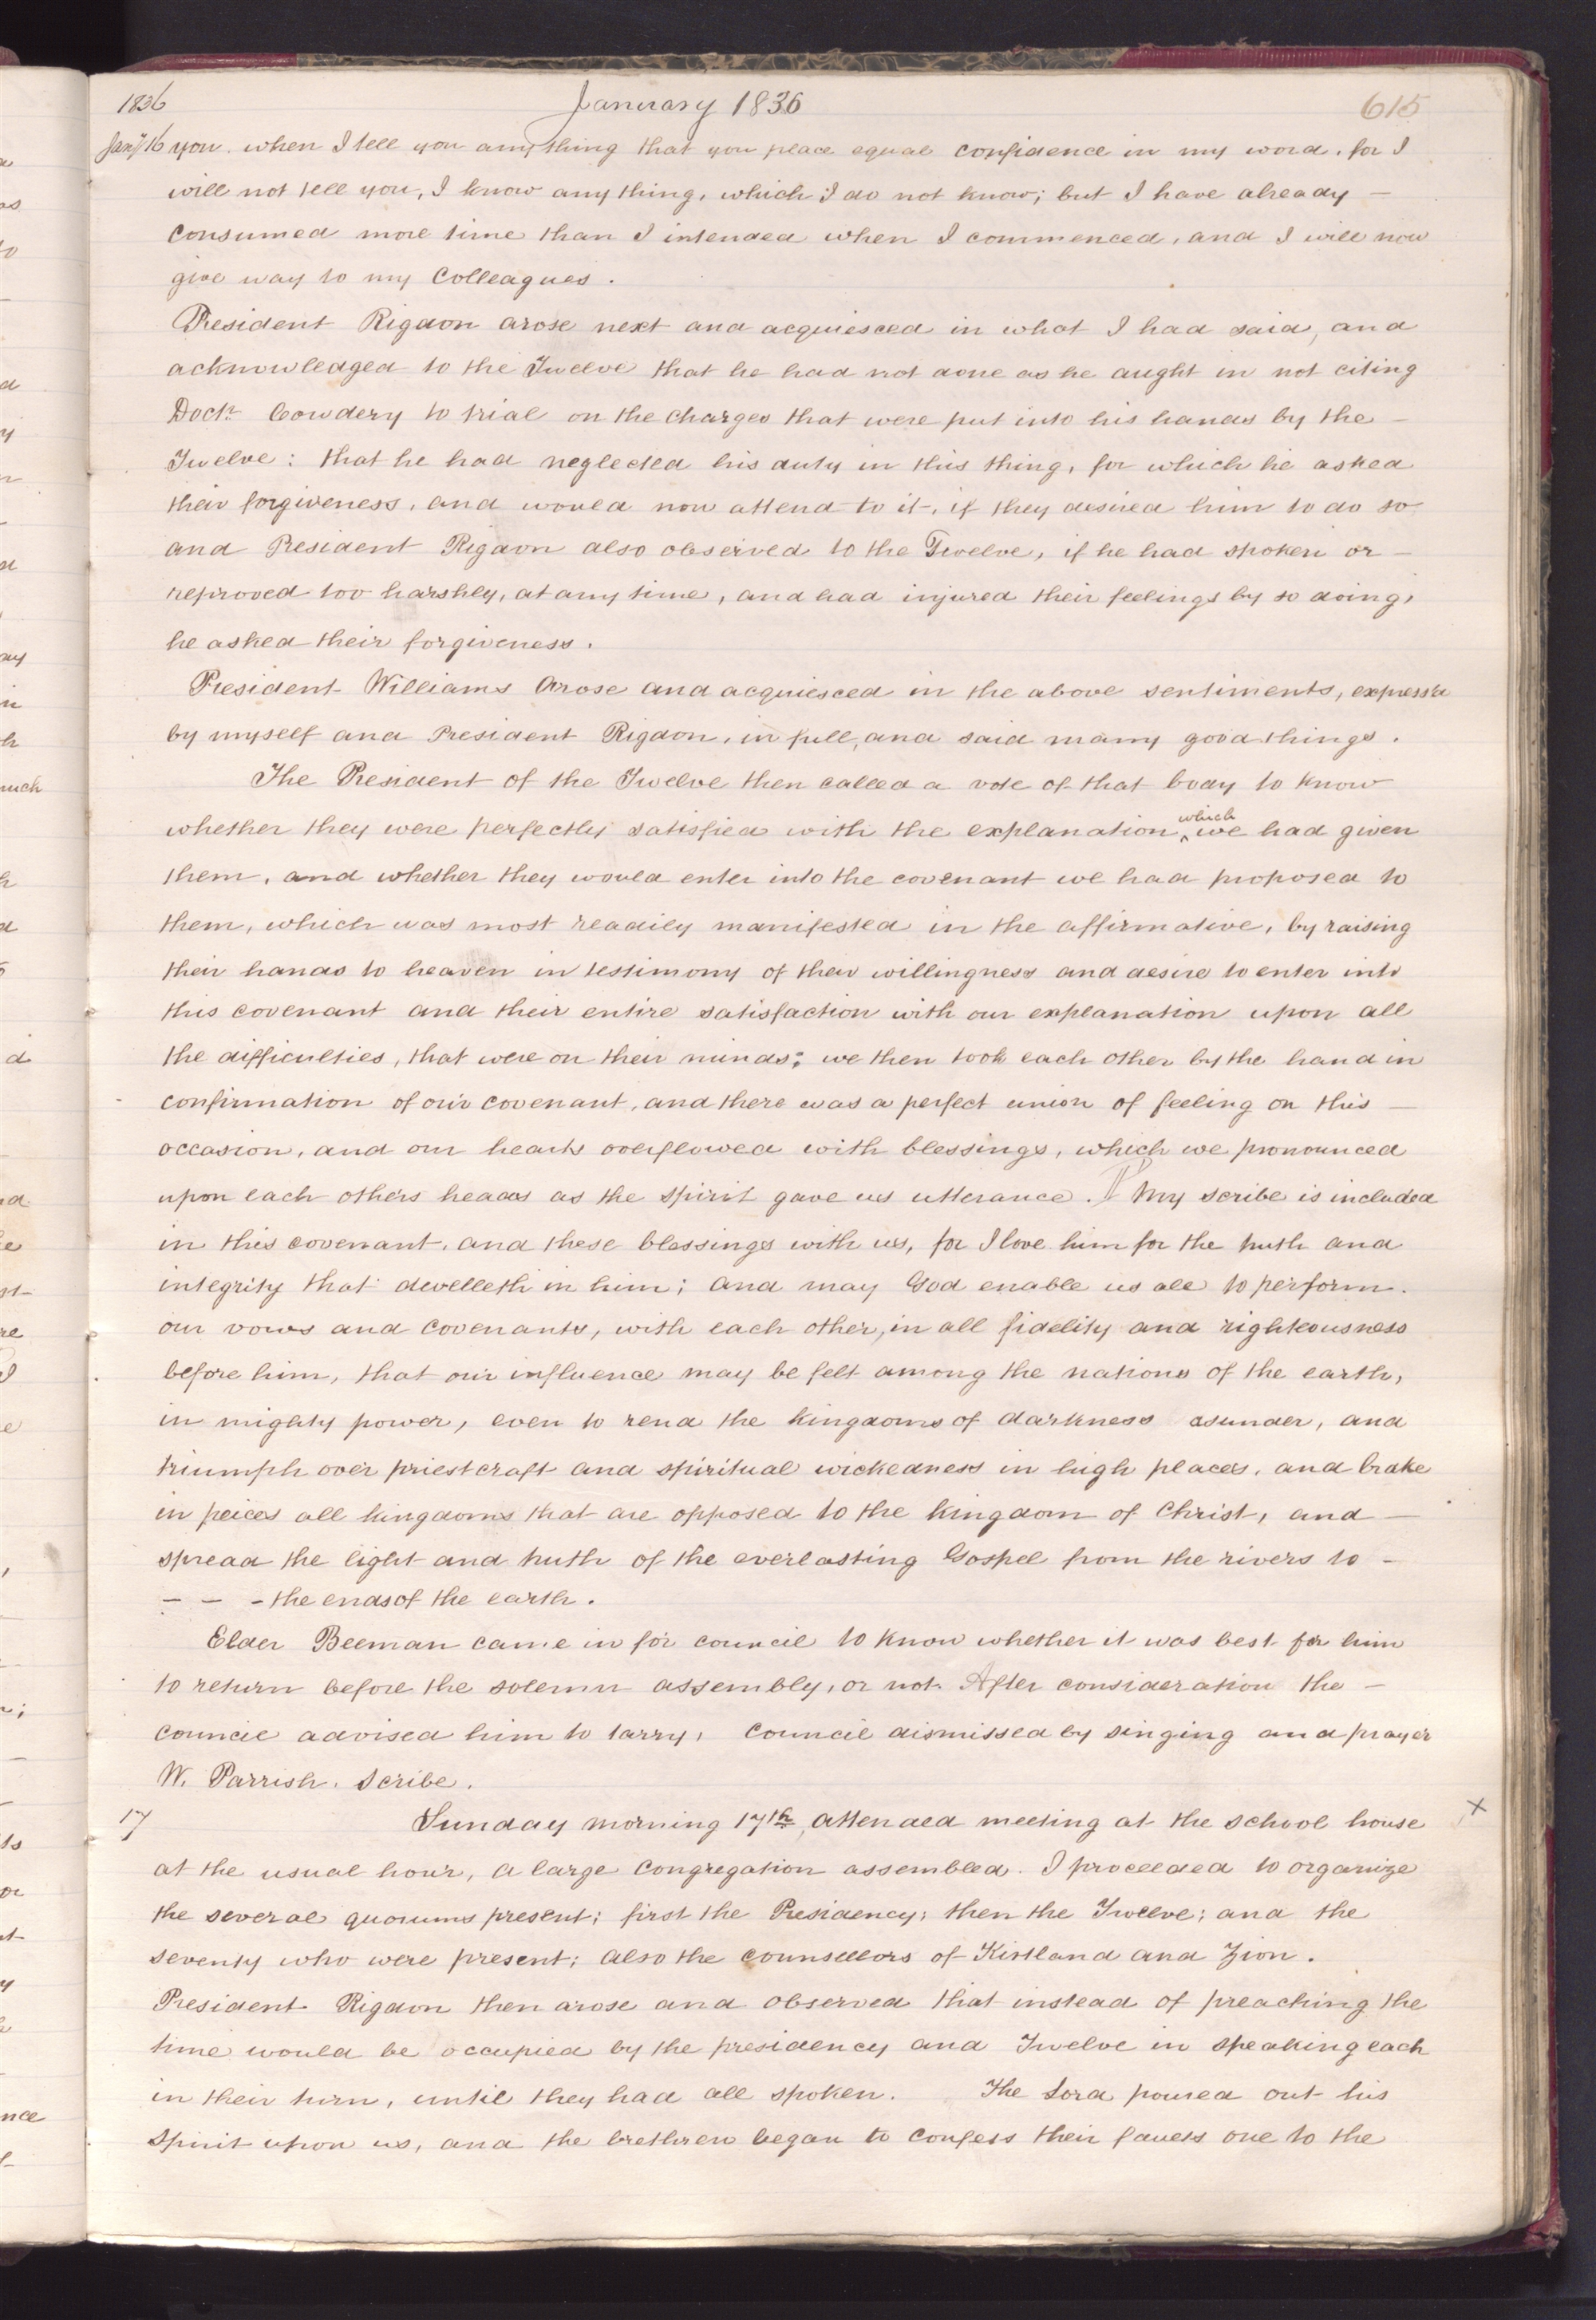 1836 January 1836 615
Jany 16 you. when I tell you any thing that you place equal confidence in my word, for I
will not tell you, I know any thing, which I do not know; but I have already —
consumed more time than I intended when I commenced, and I will now
give way to my Colleagues.
President Rigdon arose next and acquiesced in what I had said, and
acknowledged to the Twelve that he had not done as he aught in not citing
Doctr. Cowdery to trial on the charges that were put into his hands by the —
Twelve: that he had neglected his duty in this thing, for which he asked
their forgiveness, and would now attend to it, if they desired him to do so
and President Rigdon also observed to the Twelve, if he had spoken or —
reproved too harshly, at any time, and had injured their feelings by so doing,
he asked their forgiveness.
President Williams arose and acquiesced in the above sentiments, express'd
by myself and President Rigdon, in full, and said many good things.
The President of the Twelve then called a vote of that body to know
whether they were perfectly satisfied with the explanation ^which we had given
them, and whether they would enter into the covenant we had proposed to
them, which was most readily manifested in the affirmative, by raising
their hands to heaven in testimony of their willingness and desire to enter into
this covenant and their entire satisfaction with our explanation upon all
the difficulties, that were on their minds; we then took each other by the hand in
confirmation of our covenant, and there was a perfect union of feeling on this —
occasion, and our hearts overflowed with blessings, which we pronounced
upon each others heads as the spirit gave us utterance. ¶ My scribe is included
in this covenant, and these blessings with us, for I love him for the truth and
integrity that dwelleth in him; and may God enable us all to perform.
our vows and covenants, with each other, in all fidelity and righteousness
before him, that our influence may be felt among the nations of the earth,
in mighty power, even to rend the kingdoms of darkness asunder, and
triumph over priestcraft and spiritual wickedness in high places, and brake
in peices all kingdoms that are opposed to the kingdom of Christ, and —
spread the light and truth of the everlasting Gospel from the rivers to —
— — - the ends of the earth.
Elder Beeman came in for council to know whether it was best for him
to return before the solemn assembly, or not. After consideration the —
council advised him to tarry, Council dismissed by singing and prayer
W. Parrish. Scribe.
17 Sunday morning 17th, attended meeting at the school house ×
at the usual hour, a large congregation assembled. I proceeded to organize
the several quorums present; first the Presidency; then the Twelve; and the
seventy who were present; also the counsellors of Kirtland and Zion.
President Rigdon then arose and observed that instead of preaching the
time would be occupied by the presidency and Twelve in speaking each
in their turn, until they had all spoken. The Lord poured out his
spirit upon us, and the brethren began to confess their faults one to the